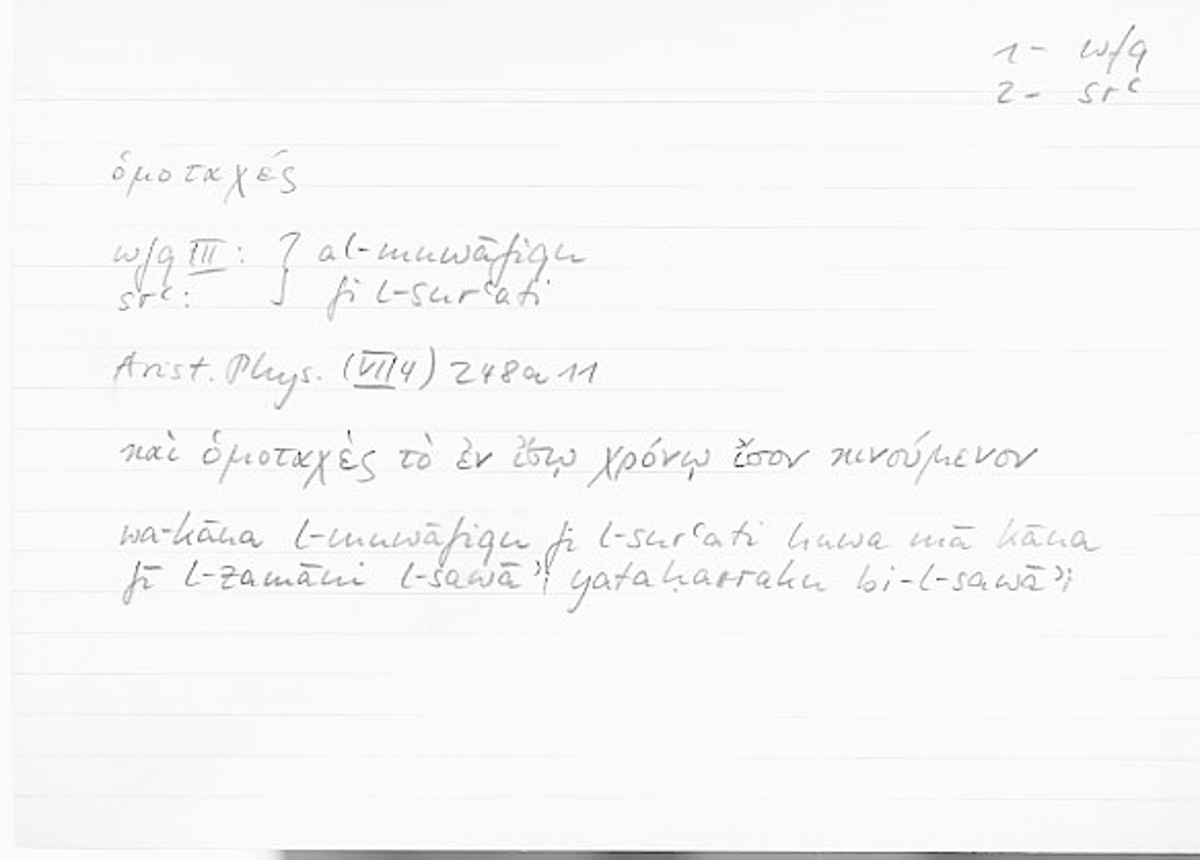 1- wfq
2- srʿ
ὁμοταχές
wfq III: } al-muwāfiqu
srʿ: fi l-surʿati
Arist. Phys. (VII 4) 248a11
καὶ ὁμοταχὲς τὸ ἐν ἴσῳ χρόνῳ ἴσον κινούμενον
wa-kāna l-muwāfiqu fi l-surʿati huwa mā kāna
fī l-zamāni l-sawāʾi yataḥarraku bi-l-sawāʾi